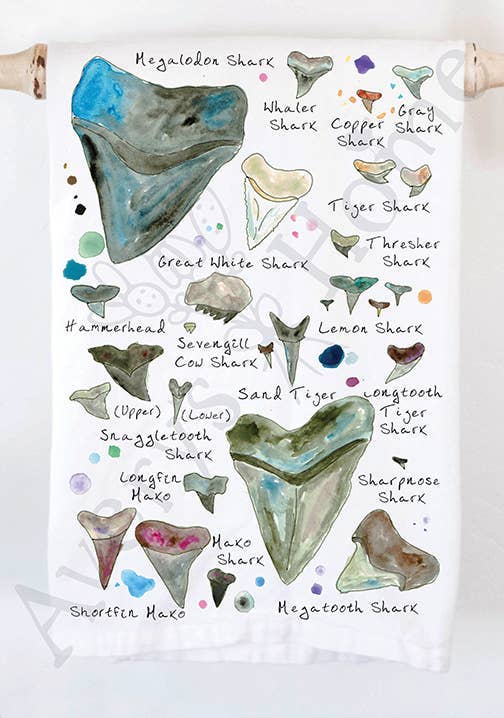 Megalodon Shark
Whaler
Shark
Copper
Shark
Gray
Shark
Tiger Shark
Great White Shark
Thresher
Shark
Hammerhead
Sevengill
Cow Shark
Lemon Shark
(Upper)
(Lower)
Snaggletooth
Shark
Sand Tiger
Longtooth
Tiger
Shark
Longfin
Mako
Sharpnose
Shark
Mako
Shark
Shortfin Mako
Megatooth Shark